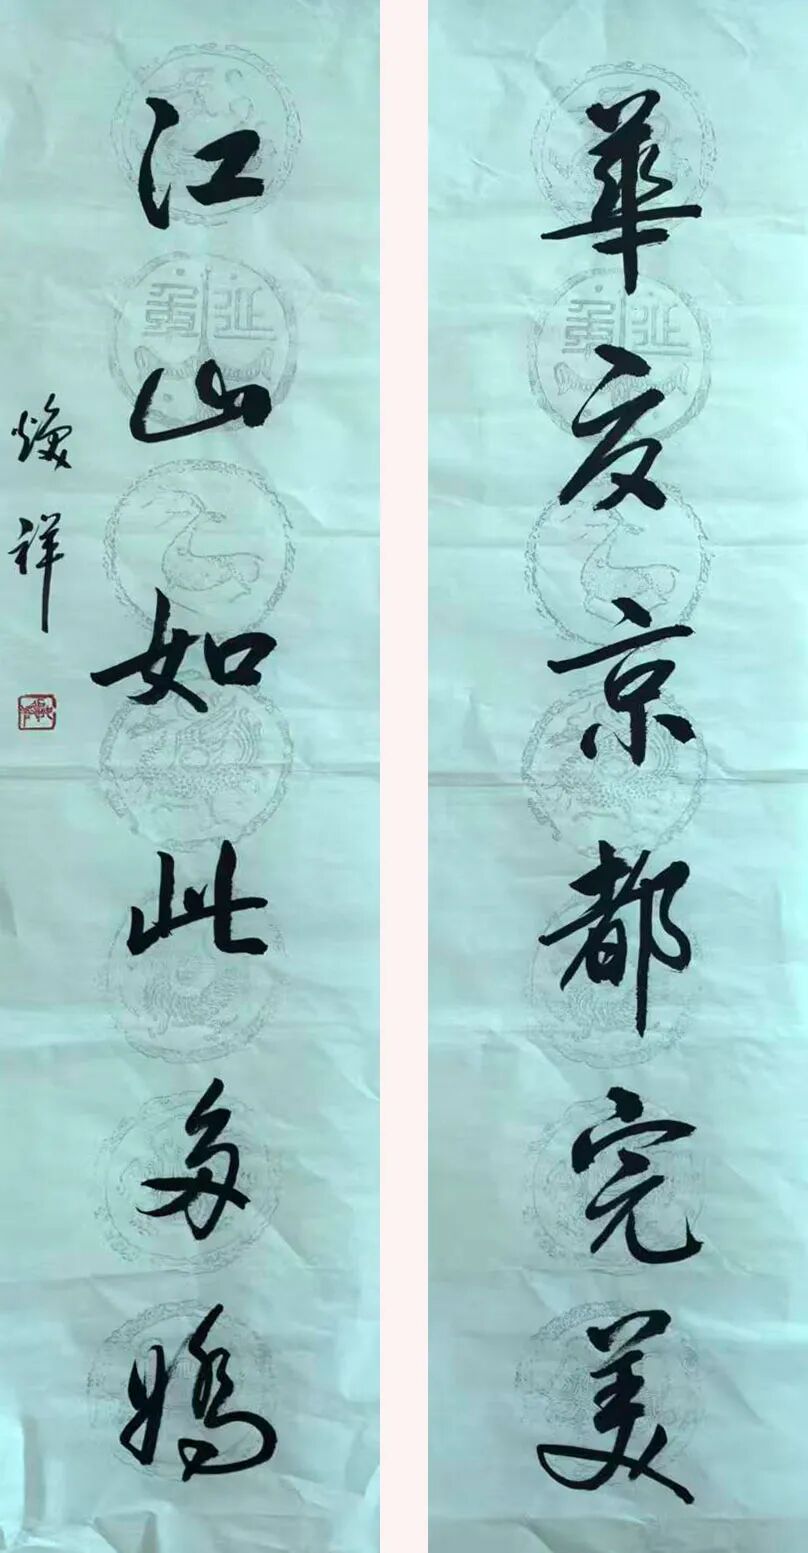 華夏京都完美
江山如此多嬌
焕祥